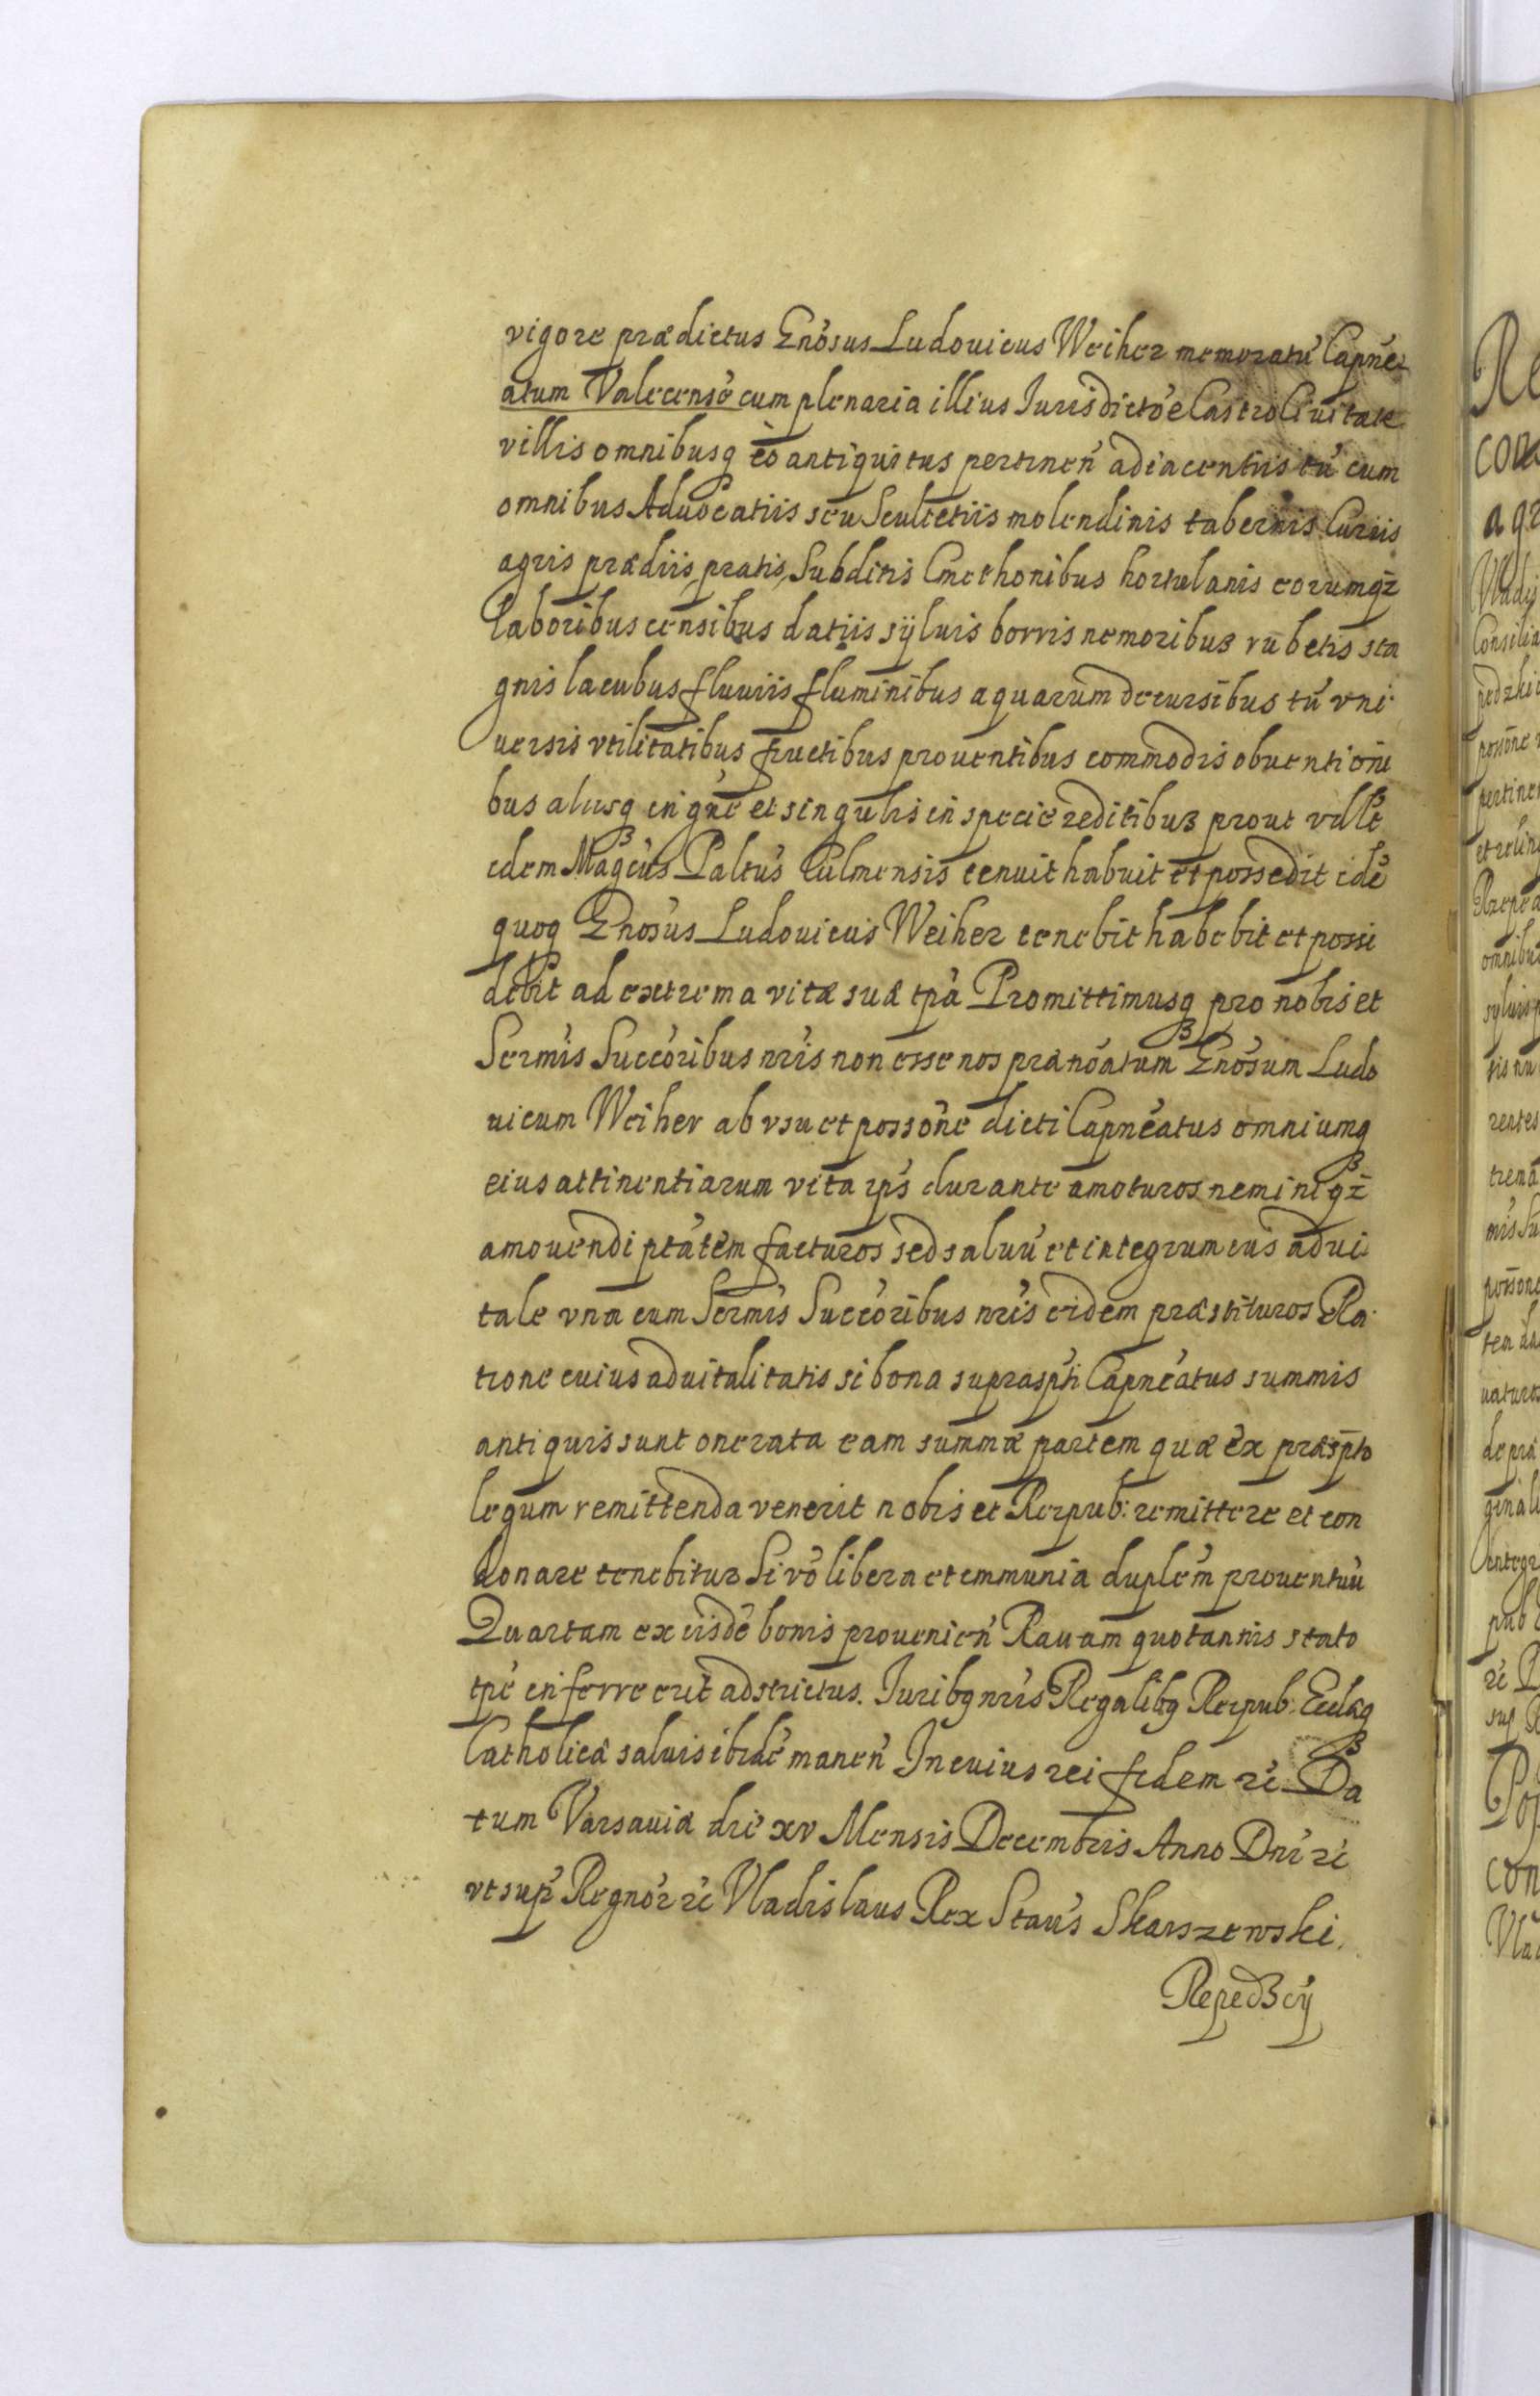 vigore prædictus Gnosus Ludouicus Weiher memoratũ Capne-
atum Valecensẽ cum plenaria illius Jurisdictõe Castro Ciuitate
villis omnibusq eo antiquitus pertineñ adiacentiis tũ cum
omnibus Aduocatiis seu Scultetiis molendinis tabernis Curiis
agris prædiis pratis Subditis Cmethonibus hortulanis eorumqz
laboribus censibus datiis syluis borris nemoribus rubetis sta
gnis lacubus fluuiis fluminibus aquarum decursibus tũ vni
uersis vtilitatibus fructibus prouentibus commodis obuentioni
bus aliusq in gñe et singulis in specie reditibus prout
idem Magcus Paltus Culmensis tenuit habuit et possedit idẽ
quoq Gnosus Ludouicus Weiher tenebit habebit et possi
debit ad extrema vitæ suæ tpa Promittimusq pro nobis et
Sermis Succoribus nris non esse nos prænoatum Gnosum Ludo
uicum Weiher ab vsu et possone dicti Capneatus omniumq
eius attinentiarum vita ips durante amoturos neminiqz
amouendi ptatem facturos sed saluũ et integrum ius adui
tale vna cum Sermis Succoribus nris eidem præstituros Ra
tione cuius aduitalitatis si bona supraspti Capneatus summis
antiquis sunt onerata eam summæ partem quæ ex præspto
legum remittenda venerit nobis et Reipub: remittere et con
donare tenebitur Si vo libera et immunia duplem prouentuũ
Quartam ex iisdẽ bonis prouenieñ Rauam quotannis stato
tpe inferre erit adstrictus. Juribq nris Regalibq Reipub: Eccliæq
Catholicæ saluis ibidẽ maneñ In cuius rei fidem zc Da
tum Varsauiæ die xv Mensis Decembris Anno Dni zc
vt sup Regnor zc Vladislaus Rex Staus Skarszewski.